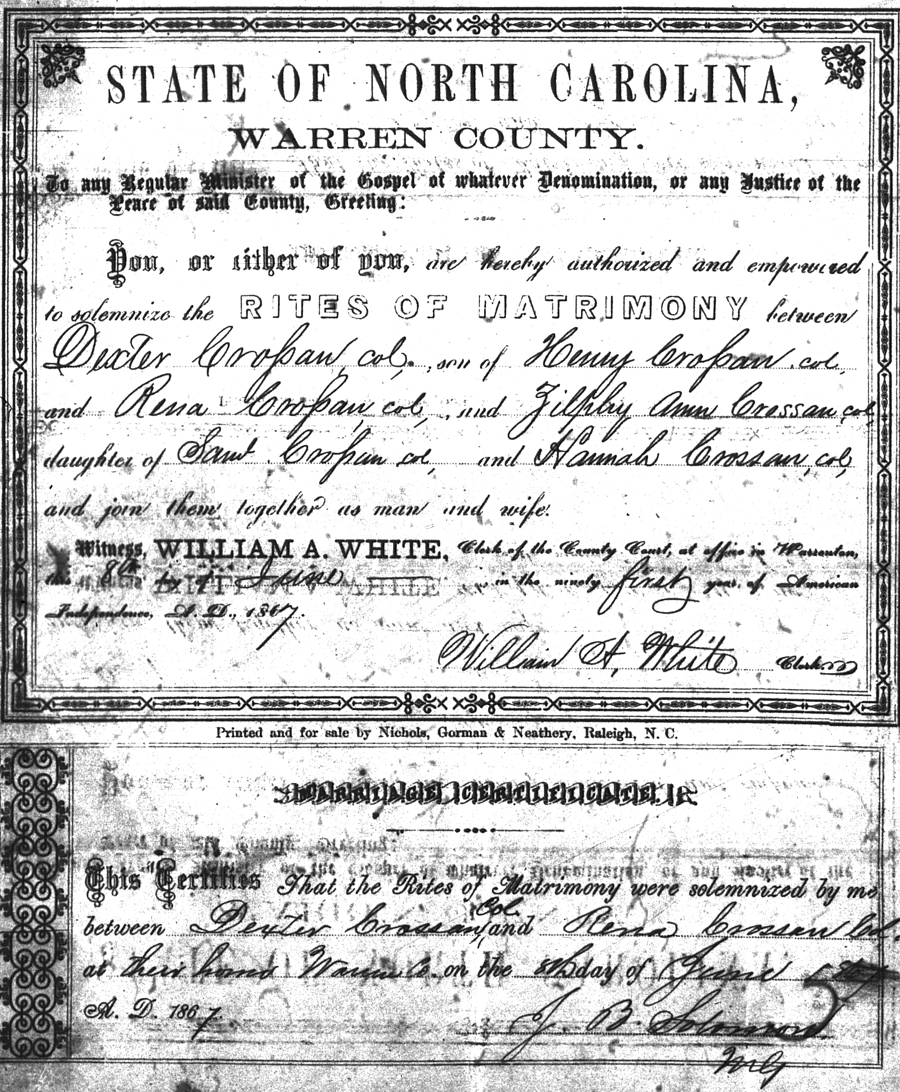 STATE OF NORTH CAROLINA,
WARREN COUNTY.
To any Regular Minister of the Gospel of whatever Denomination, or any Justice of the
Peace of said County, Greeting:
You, or either of you, are hereby authorized and empowered
to solemnize the RITES OF MATRIMONY between
Dexter Croſsan, col., son of Henry Croſsan col,
and Rena Croſsan, col, and Zilphy Ann Crossan, col,
daughter of Saml Croſsan col, and Hannah Crossan, col,
and join them together as man and wife.
Witness, WILLIAM A. WHITE, Clerk of the County Court, at office in Warrenton,
the 8th day of June in the ninety first year of American
Independence, A. D., 1867.
William A, White Clerk
Printed and for sale by Nichols, Gorman & Neathery, Raleigh, N. C.
MARRIAGE CERTIFICATE.
This Certifies That the Rites of Matrimony were solemnized by me
between Dexter Crossan, Col and Rena Crossan Col.
at their home Warren Co. on the 8th day of June
A. D. 1867.
J B Solomon
MG